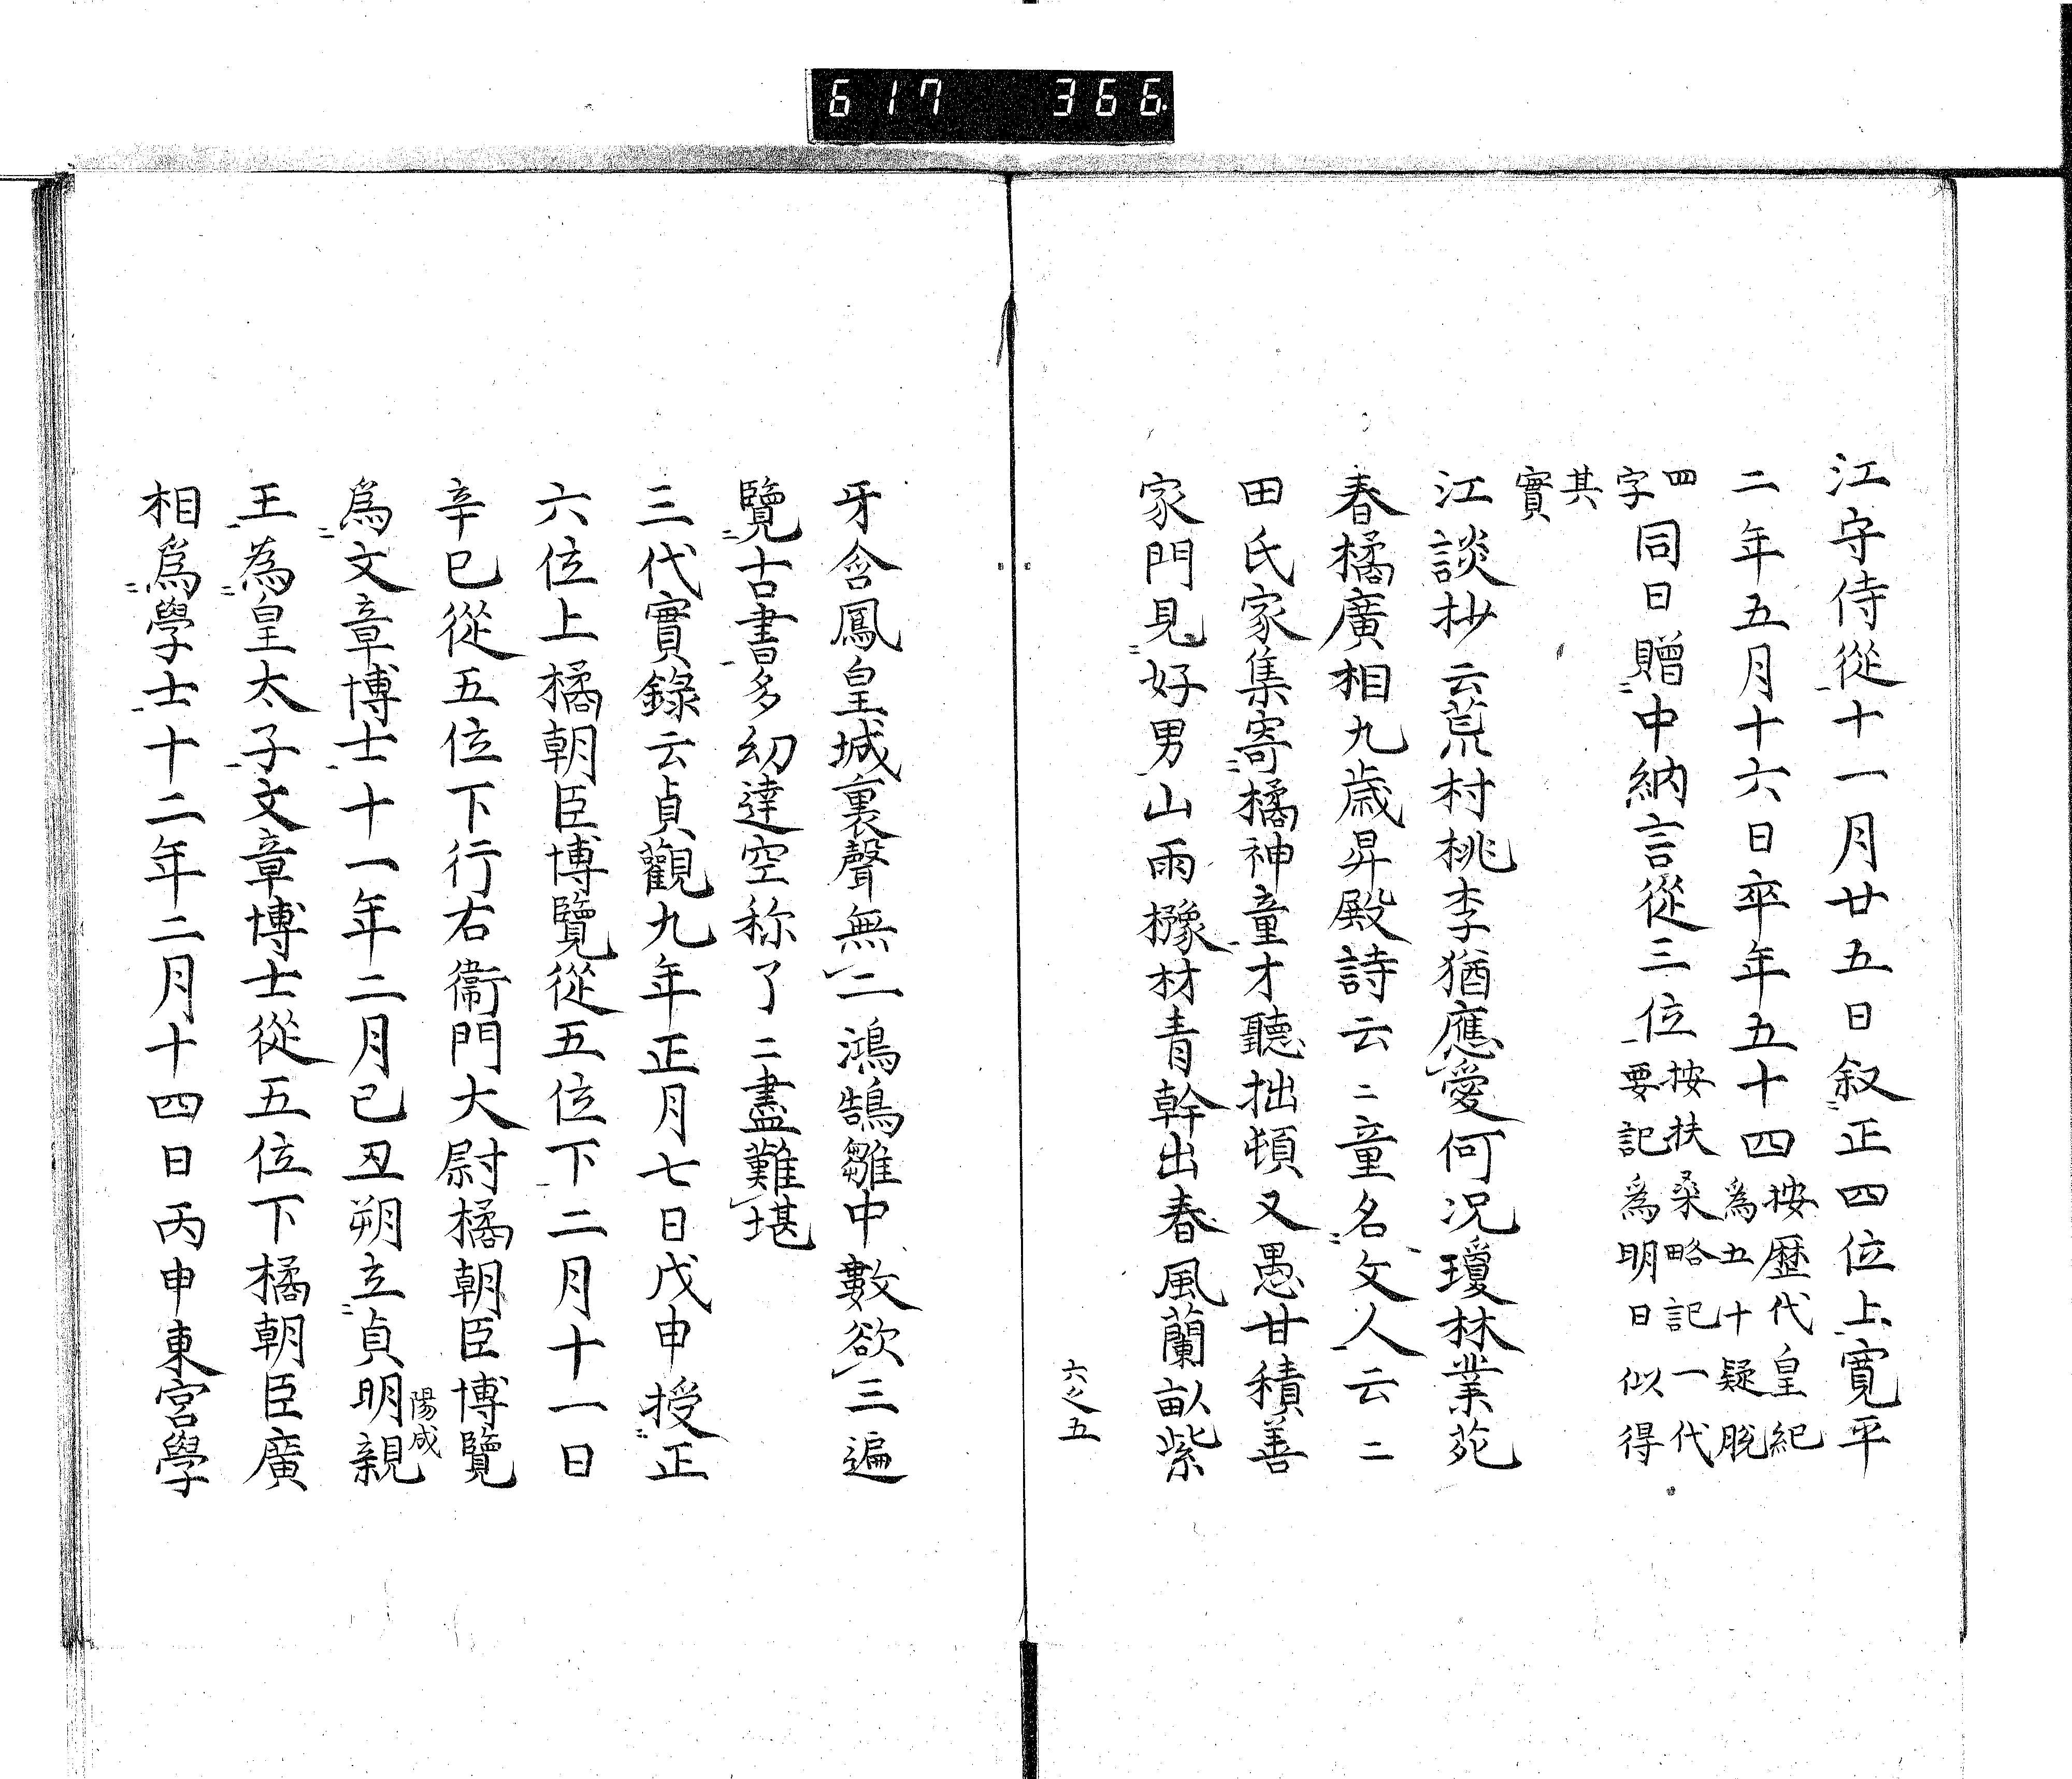 617 366
江守侍從十一月廿五日叙正四位上寛平
二年五月十六日卒年五十四按歴代皇紀為五十疑脱
四字同日贈中納言從三位按扶桑略記一代要記為明日似得
其實
江談抄云荒村桃李猶應愛何況瓊林業苑
春橘廣相九歳昇殿詩云二童名文人云二
田氏家集寄橘神童才聽拙頓又愚甘積善
家門見好男山雨櫲材青幹出春風蘭畝紫
六之五
牙含鳳皇城裏聲無二鴻鵠雛中數欲三遍
覽古書多幼達空称了二盡難堪
三代實錄云貞觀九年正月七日戊申授正
六位上橘朝臣博覽從五位下二月十一日
辛巳從五位下行右衞門大尉橘朝臣博覽
為文章博士十一年二月己丑朔立貞明親
陽成
王為皇太子文章博士從五位下橘朝臣廣
相為學士十二年二月十四日丙申東宮學